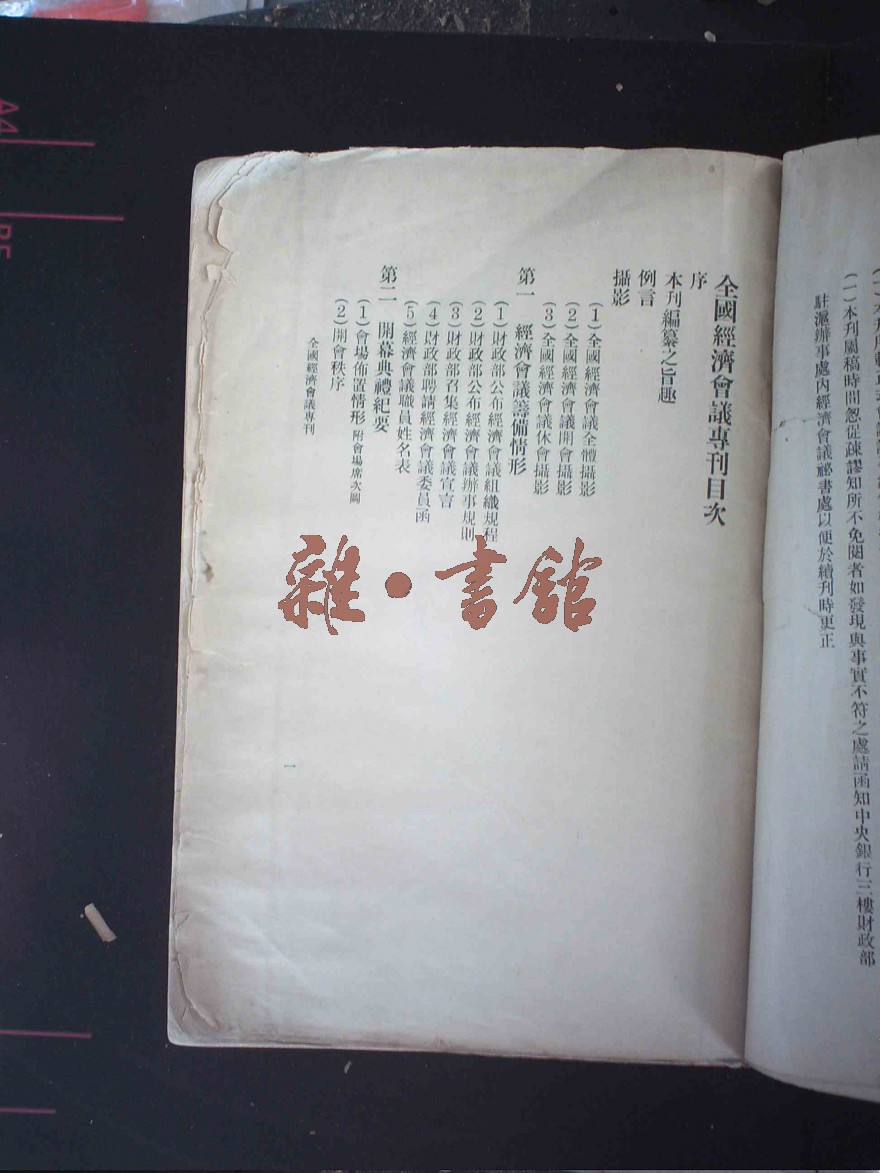 (一)本刊屬稿時間怱促疎謬知所不免閱者如發現與事實不符之處請函知中央銀行三樓財政部
駐滬辦事處內經濟會議祕書處以便於續刊時更正
全國經濟會議專刊目次
序
本刊編纂之旨趣
例言
攝影
(1)全國經濟會議全體攝影
(2)全國經濟會議開會攝影
(3)全國經濟會議休會攝影
第一 經濟會議籌備情形
(1)財政部公布經濟會議組織規程
(2)財政部公布經濟會議辦事規則
(3)財政部召集經濟會議宣言
(4)財政部聘請經濟會議委員函
(5)經濟會議職員姓名表
第二 開幕典禮紀要
(1)會場佈置情形 附會場席次圖
(2)開會秩序
全國經濟會議專刊
一
雜·書館
A4
B5